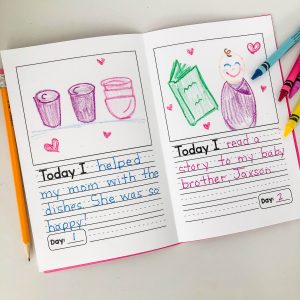 Today I helped
my mom with the
dishes. She was so
happy!
Day: 1
Today I read a
story to my baby
brother Jaxson.
Day: 2